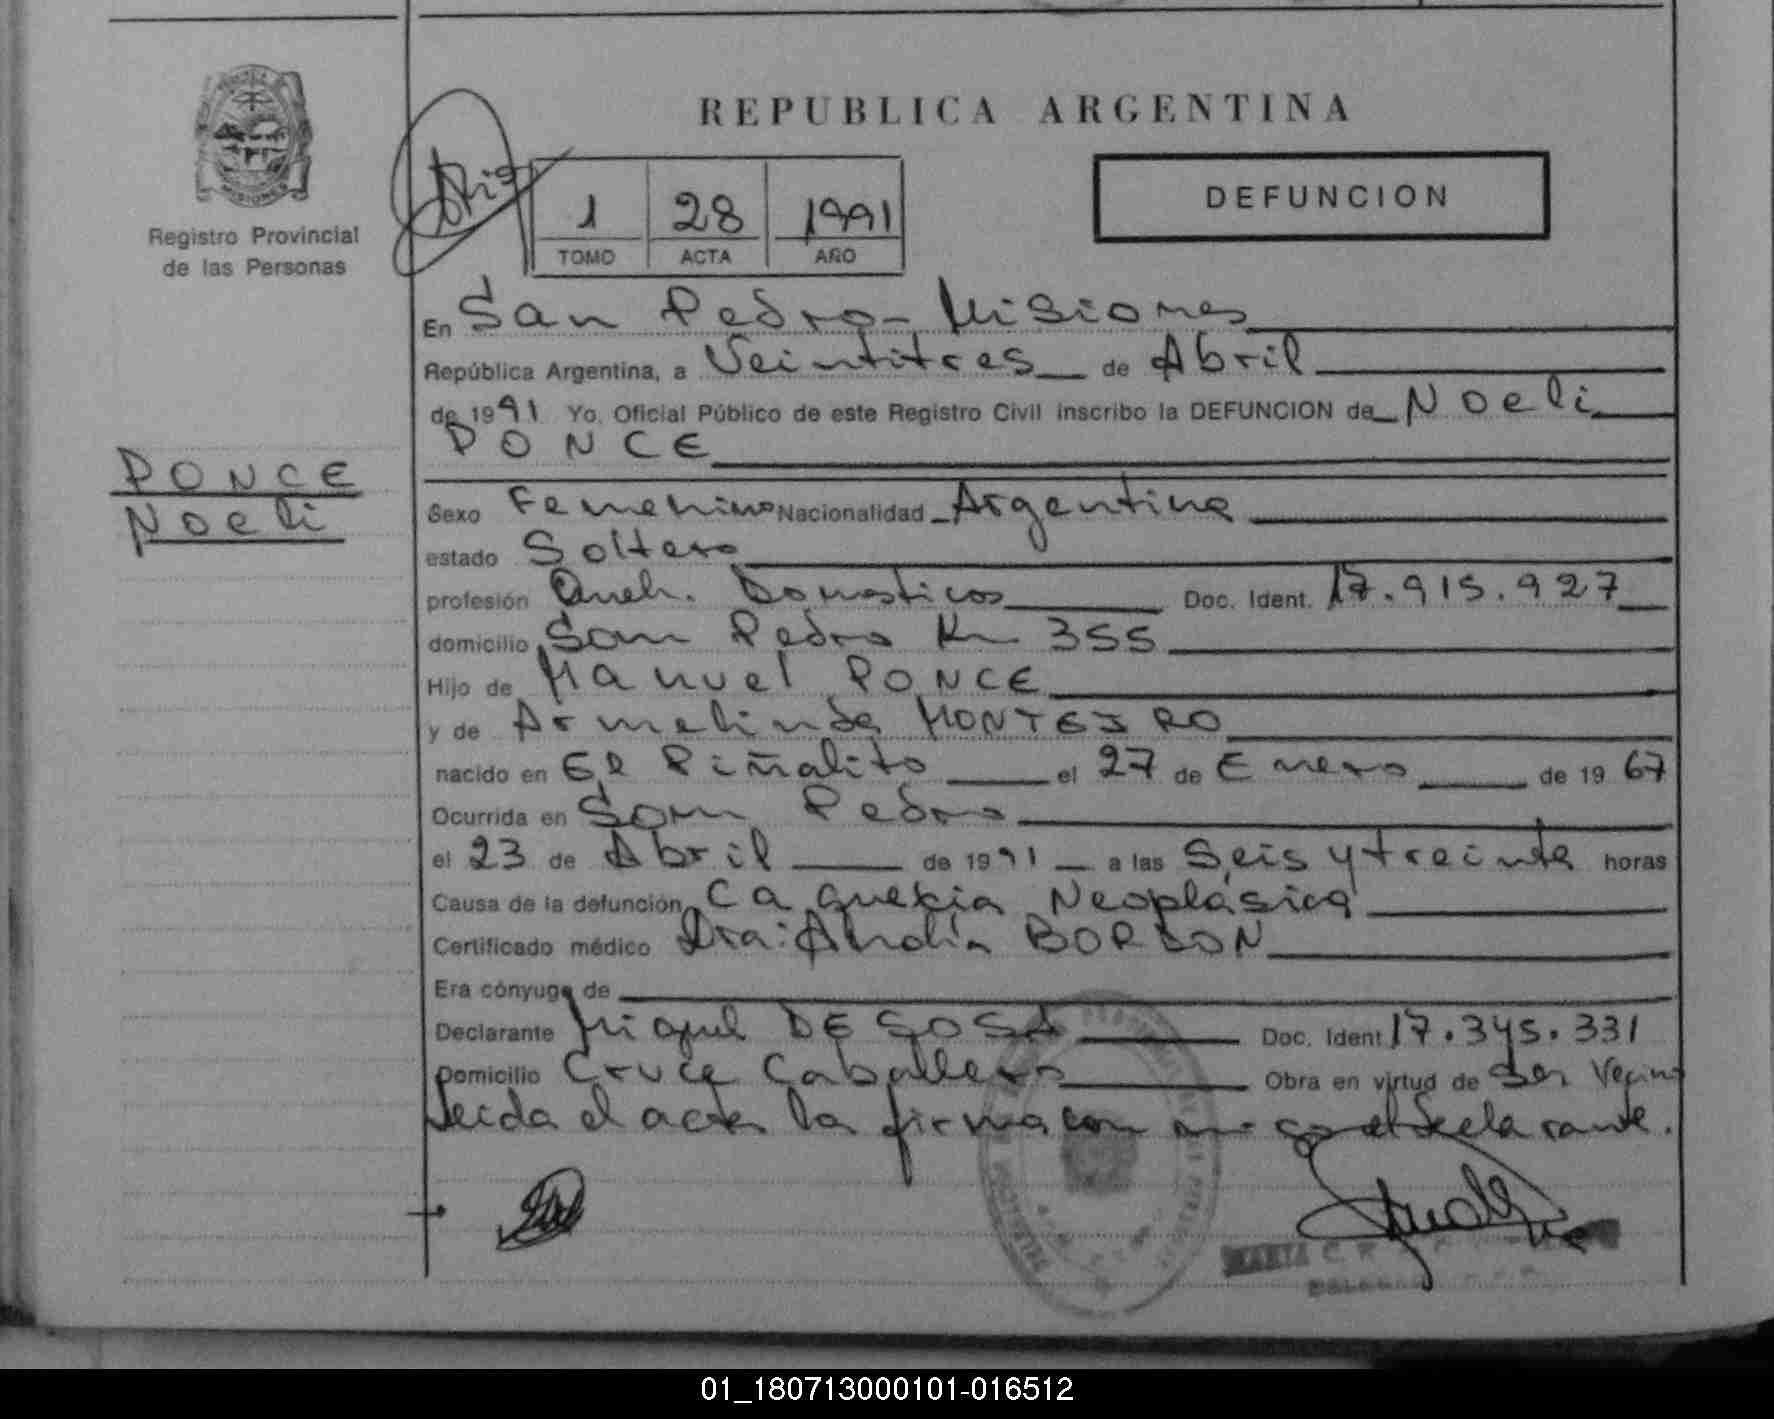 REPUBLICA ARGENTINA
DEFUNCION
MISIONES
Registro Provincial
de las Personas
1 28 1991
TOMO ACTA AÑO
En San Pedro - Misiones
República Argentina, a Veintitres de Abril
de 1991 Yo, Oficial Público de este Registro Civil inscribo la DEFUNCION de Noeli
PONCE
PONCE
Noeli
Sexo Femenino Nacionalidad Argentina
estado Soltera
profesión Queh. Domesticos Doc. Ident. 17.915.927
domicilio San Pedro Km 355
Hijo de Manuel PONCE
y de Armelinda MONTEIRO
nacido en El Piñalito el 27 de Enero de 1967
Ocurrida en San Pedro
el 23 de Abril de 1991 a las Seis y treinta horas
Causa de la defunción Caquexia Neoplásica
Certificado médico Dra: Analía BORDON
Era cónyuge de
Declarante Miguel DE SOSA Doc. Ident 17.345.331
Domicilio Cruce Caballero Obra en virtud de Ser Vecino
Leida el acta la firma con migo el declarante.
MARIA C.
01_180713000101-016512